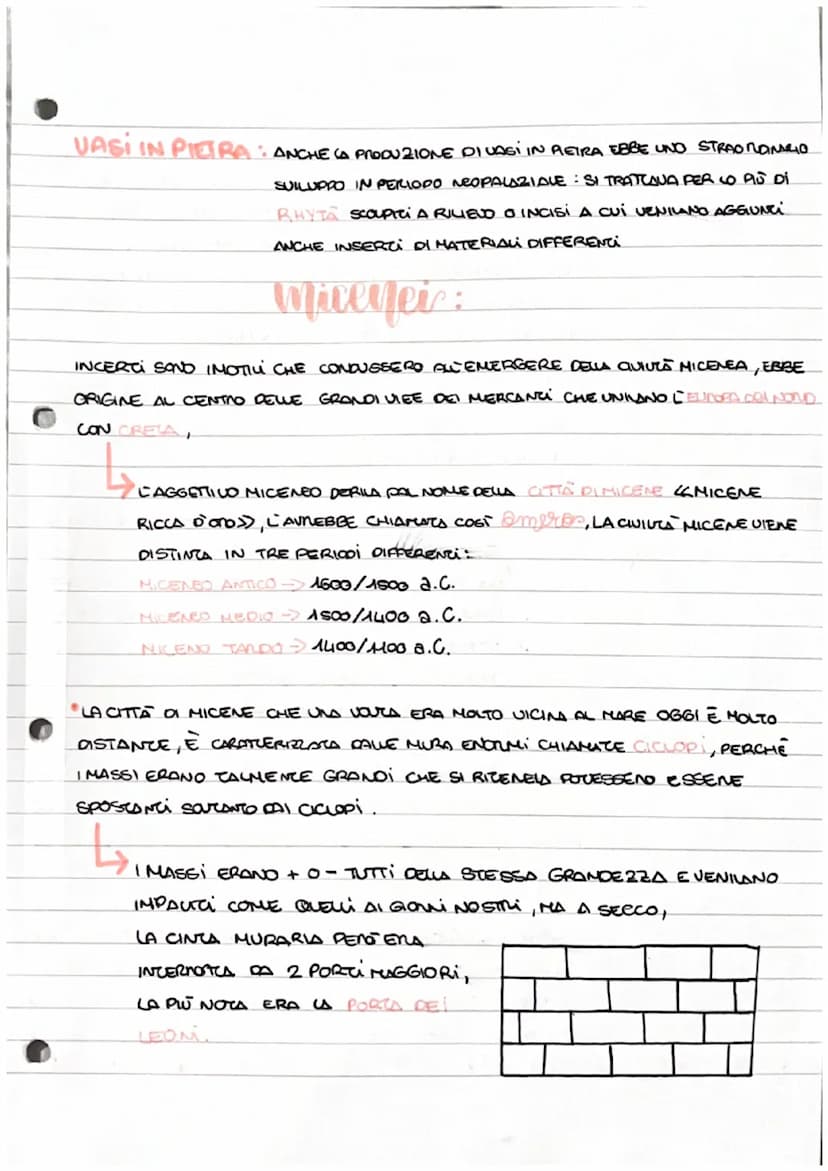 VASI IN PIETRA : ANCHE LA PRODUZIONE DI VASI IN PIETRA EBBE UNO STRAORDINARIO
SVILUPPO IN PERIODO NEOPALAZIALE : SI TRATTAVA PER LO PIÙ DI
RHYTÀ SCOLPITI A RILIEVO O INCISI A CUI VENIVANO AGGIUNTI
ANCHE INSERTI DI MATERIALI DIFFERENTI
Micenei :
INCERTI SONO I MOTIVI CHE CONDUSSERO ALL'EMERGERE DELLA CIVILTÀ MICENEA, EBBE
ORIGINE AL CENTRO DELLE GRANDI VIEE DEI MERCANTI CHE UNIVANO L'EUROPA DEL NORD
CON CRETA,
L'AGGETTIVO MICENEO DERIVA DAL NOME DELLA CITTÀ DI MICENE «MICENE
RICCA D'ORO», L'AVREBBE CHIAMATA COSÌ Omero, LA CIVILTÀ MICENE VIENE
DISTINTA IN TRE PERIODI DIFFERENTI:
MICENEO ANTICO → 1600/1500 a.C.
MICENEO MEDIO → 1500/1400 a.C.
MICENO TARDO → 1400/1100 a.C.
• LA CITTÀ DI MICENE CHE UNA VOLTA ERA MOLTO VICINA AL MARE OGGI È MOLTO
DISTANTE, È CARATTERIZZATA DALLE MURA ENORMI CHIAMATE CICLOPI, PERCHÉ
I MASSI ERANO TALMENTE GRANDI CHE SI RITENEVA POTESSERO ESSERE
SPOSTANTI SOLTANTO DAI CICLOPI.
I MASSI ERANO + O - TUTTI DELLA STESSA GRANDEZZA E VENIVANO
IMPALITI COME QUELLI AI GIORNI NOSTRI, MA A SECCO,
LA CINTA MURARIA PERÒ ERA
INTERROTTA DA 2 PORTI MAGGIORI,
LA PIÙ NOTA ERA LA PORTA DEI
LEONI.